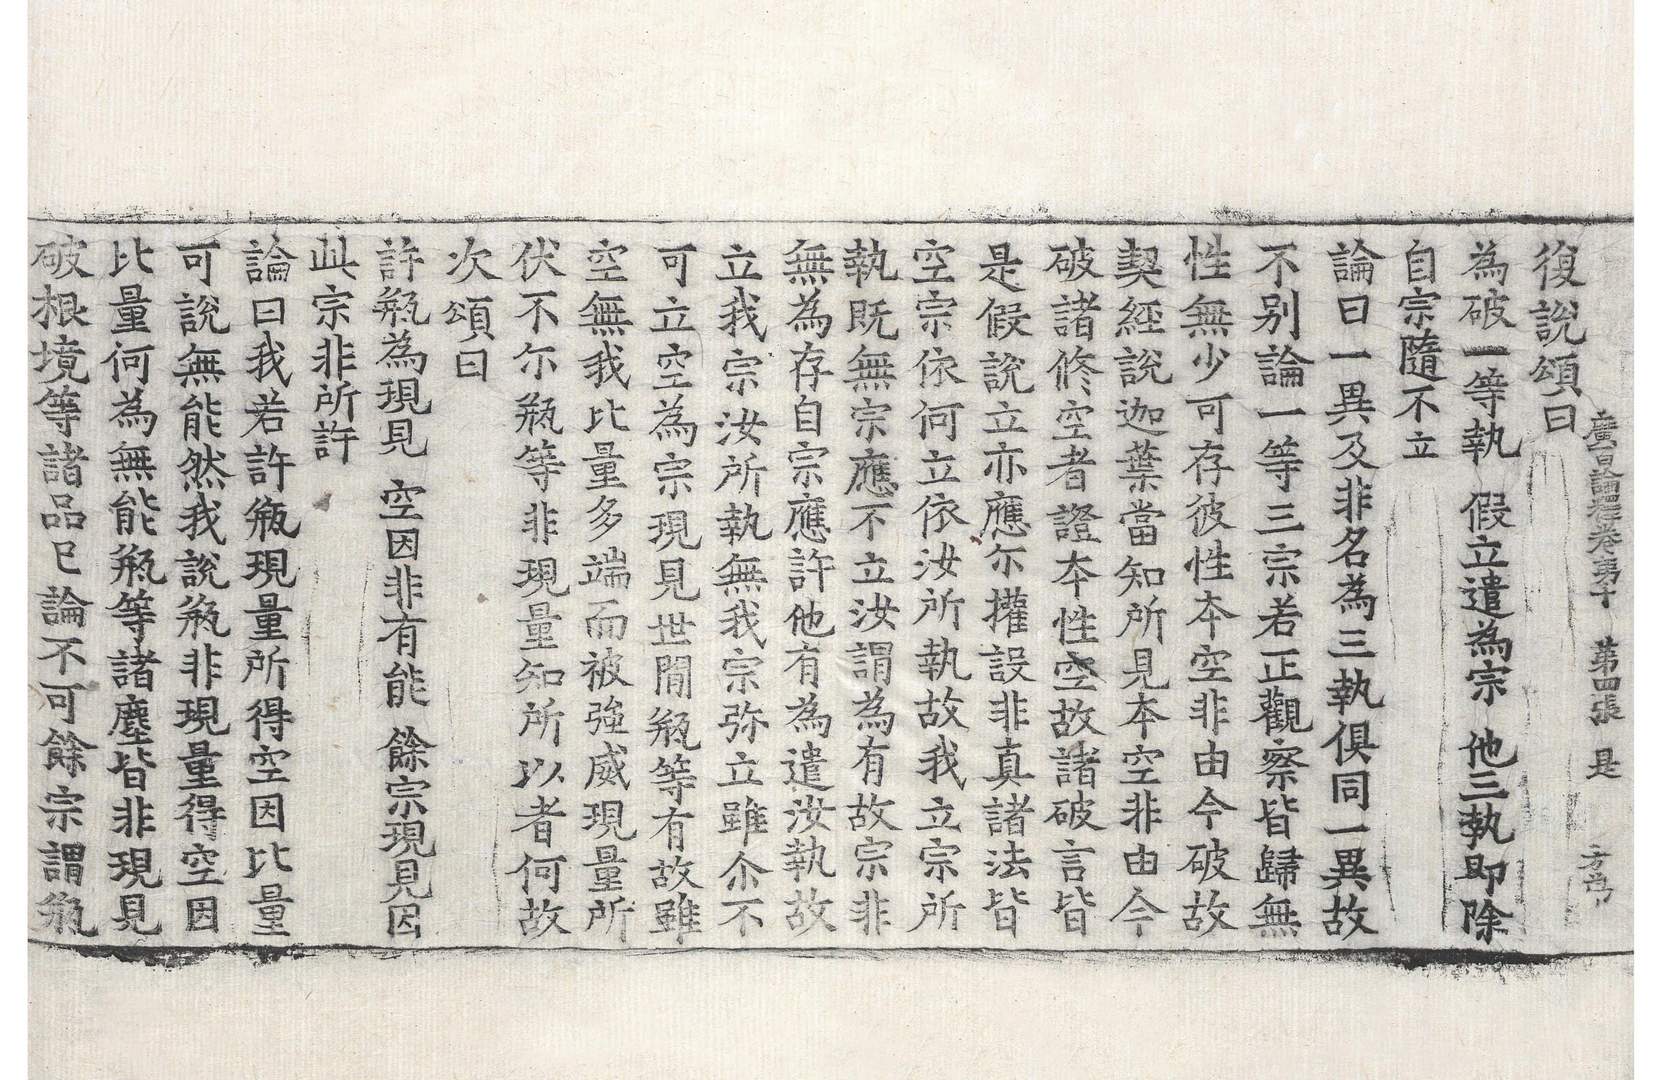 廣百論釋卷第十　第四張　是
復說頌曰
為破一等執　假立遣為宗　他三執即除
自宗隨不立
論曰一異及非名為三執俱同一異故
不別論一等三宗若正觀察皆歸無
性無少可存彼性本空非由今破故
契經說迦葉當知所見本空非由今
破諸修空者證本性空故諸破言皆
是假說立亦應尒權設非真諸法皆
空宗依何立依汝所執故我立宗所
執既無宗應不立汝謂為有故宗非
無為存自宗應許他有為遣汝執故
立我宗汝所執無我宗弥立雖尒不
可立空為宗現見世間瓶等有故雖
空無我比量多端而被強威現量所
伏不尒瓶等非現量知所以者何故
次頌曰
許瓶為現見　空因非有能　餘宗現見因
此宗非所許
論曰我若許瓶現量所得空因比量
可說無能然我說瓶非現量得空因
比量何為無能瓶等諸塵皆非現見
破根境等諸品已論不可餘宗謂瓶